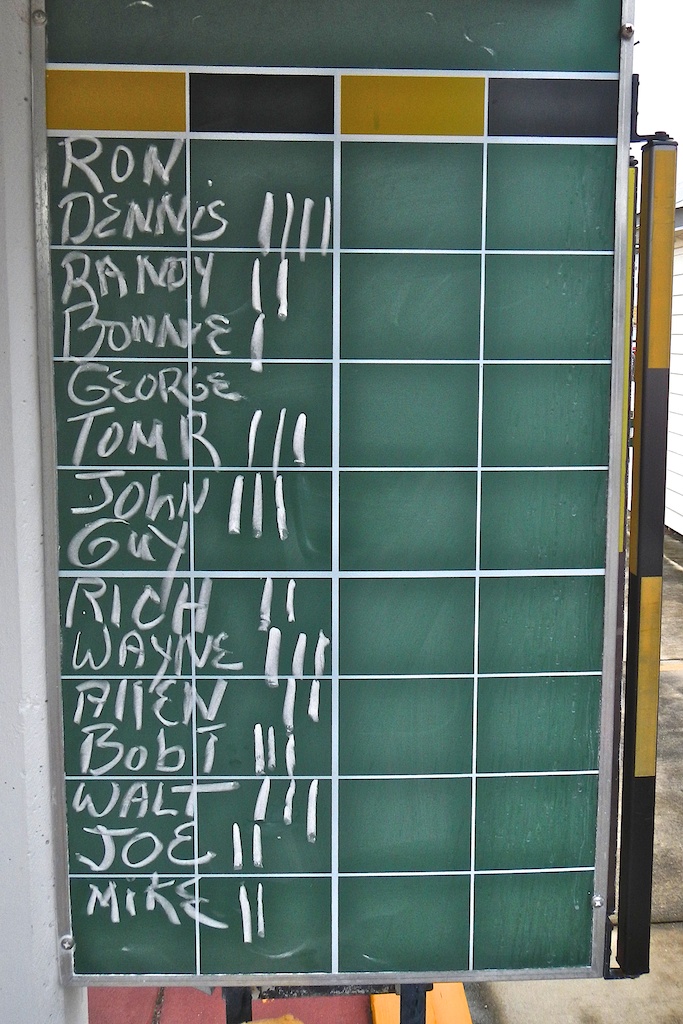 RON
DENNIS ||||
RANDY ||
BONNIE |
GEORGE
TOM R |||
JOHN |||
GUY
RICH ||
WAYNE |||
AllEN ||
BobT |||
WALT |||
JOE ||
MiKE ||